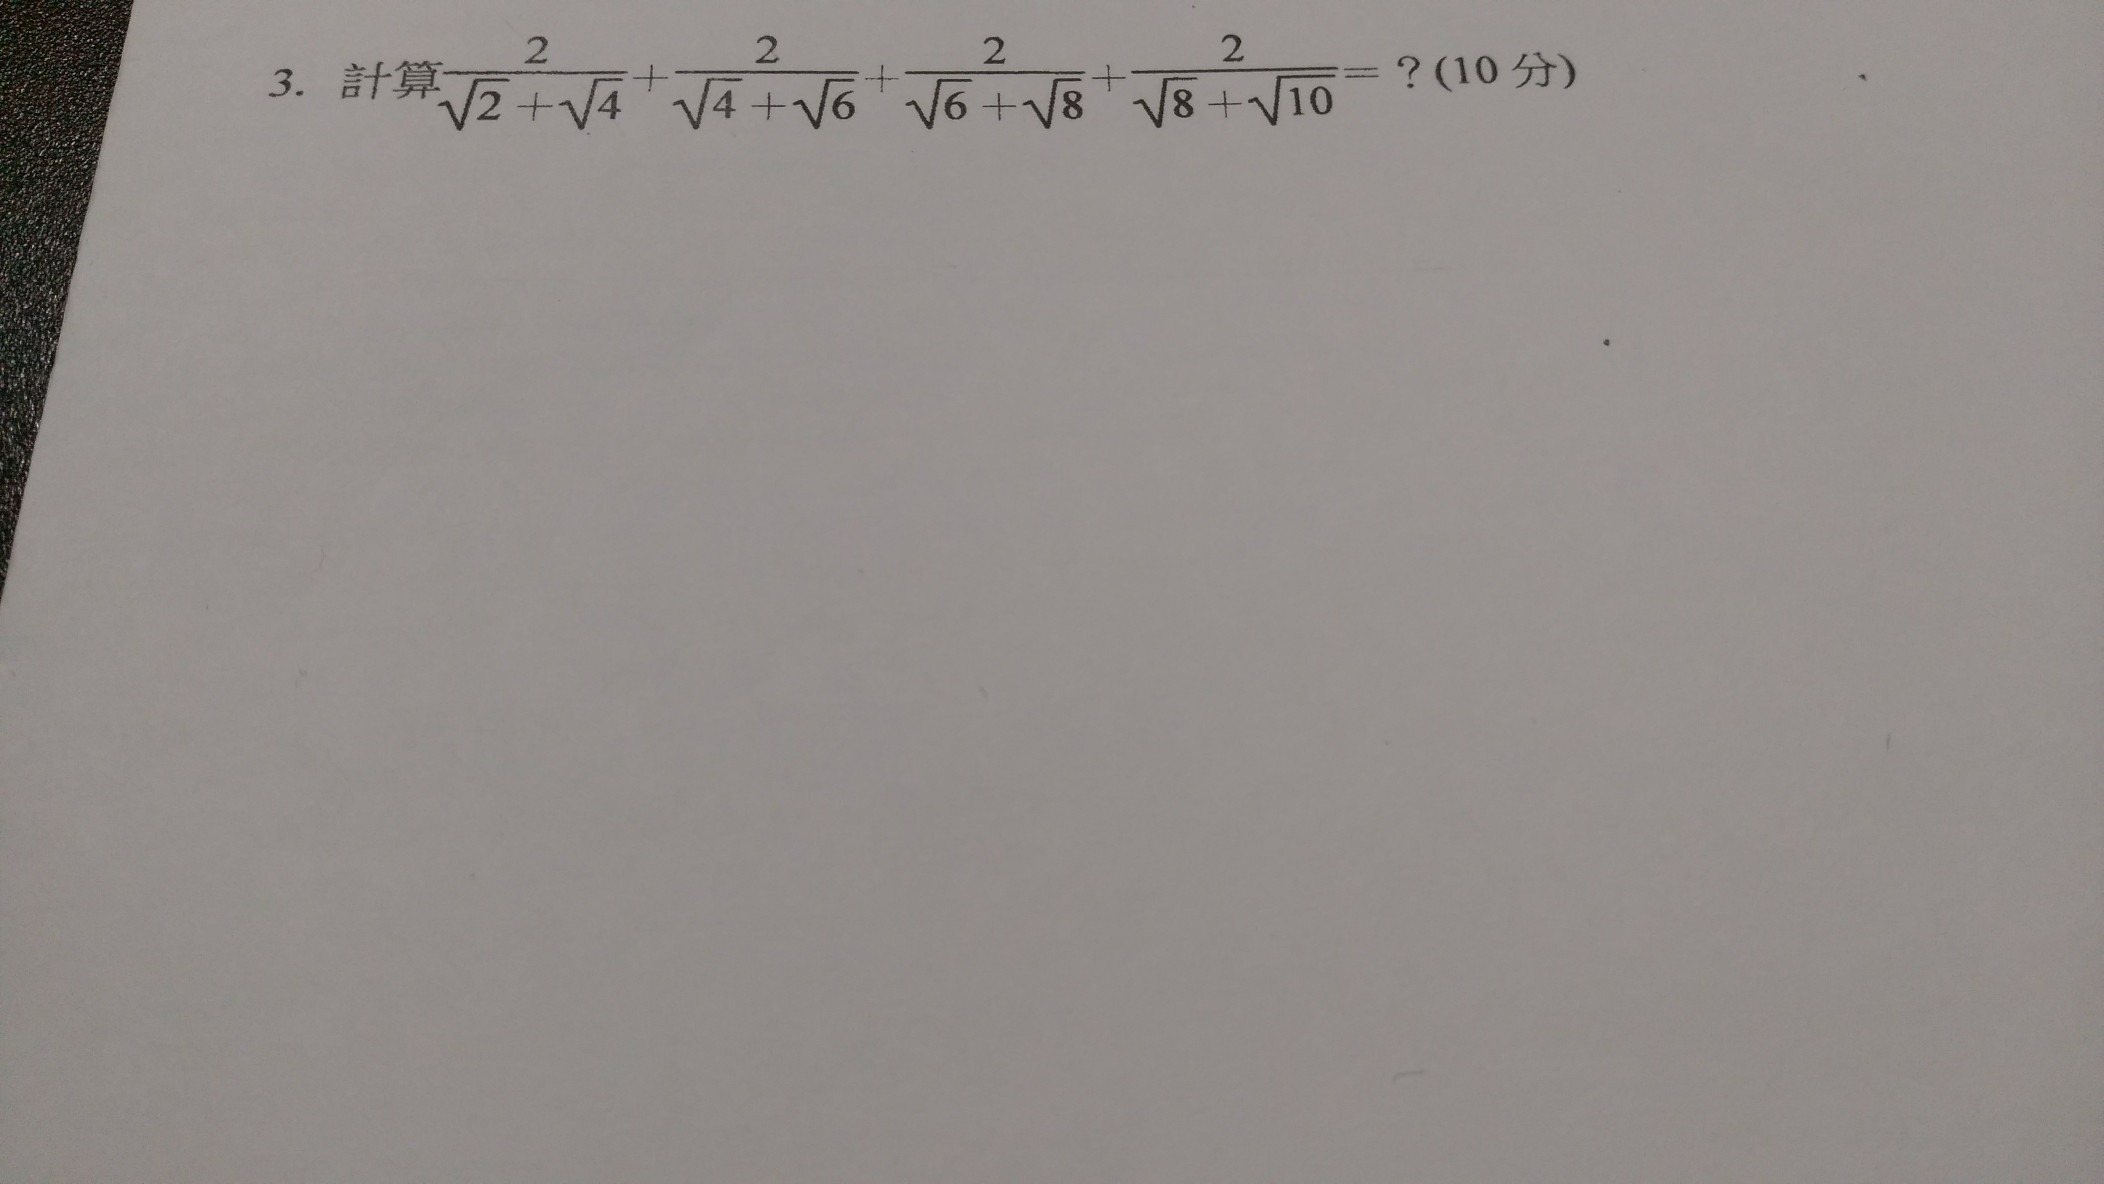 3. 計算 \frac{2}{\sqrt{2}+\sqrt{4}}+\frac{2}{\sqrt{4}+\sqrt{6}}+\frac{2}{\sqrt{6}+\sqrt{8}}+\frac{2}{\sqrt{8}+\sqrt{10}}= ? (10 分)